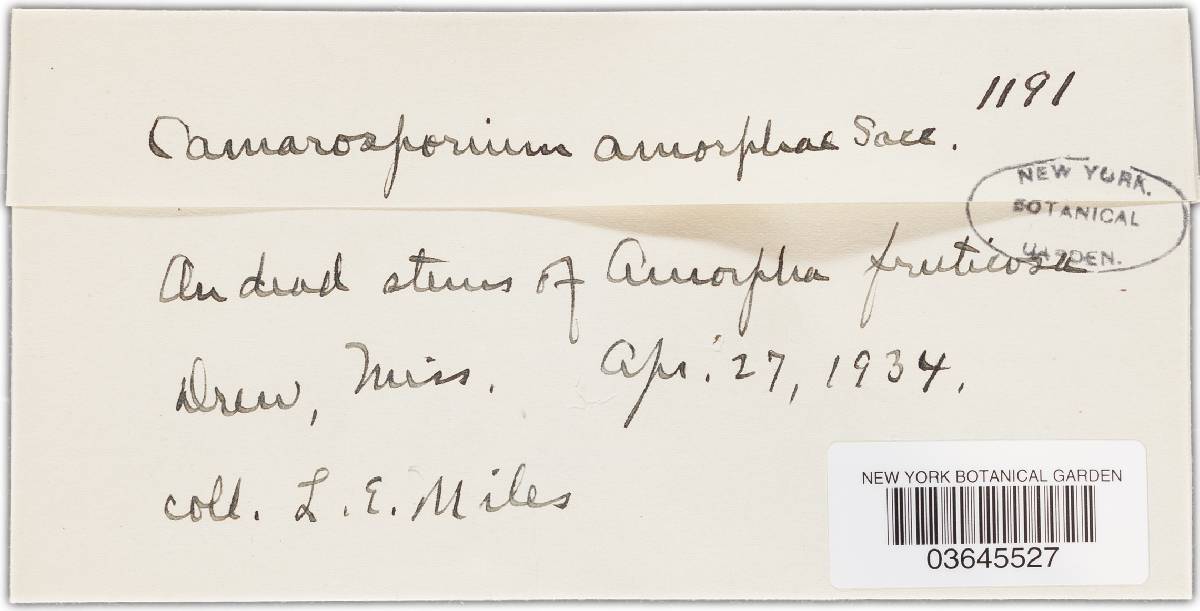 1191
Camarosporium amorphae Sacc.
NEW YORK.
BOTANICAL
GARDEN.
On dead stems of Amorpha fruticosa
Drew, Miss. Apr. 27, 1934.
coll. L. E. Miles
NEW YORK BOTANICAL GARDEN
03645527